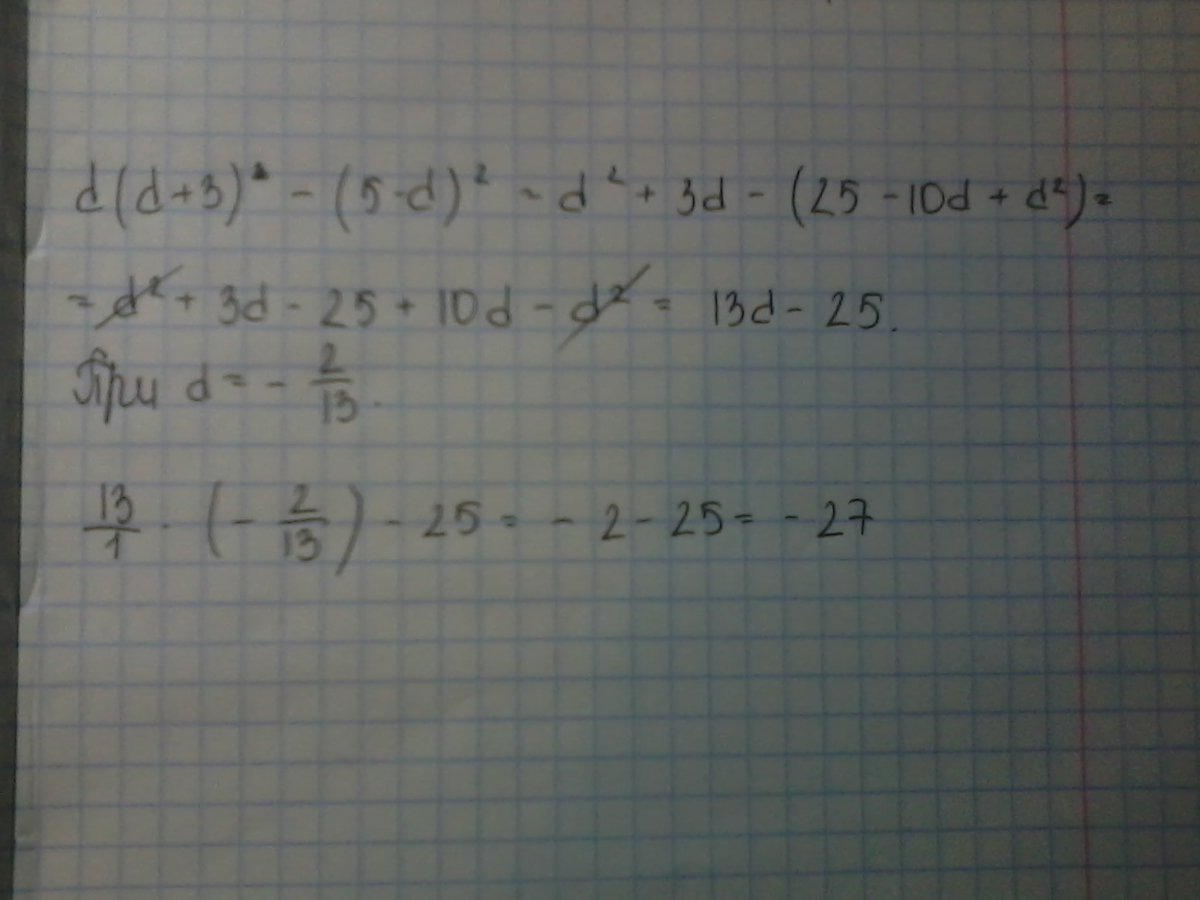 d(d+3)² - (5-d)² = d² + 3d - (25 - 10d + d²) =
= d² + 3d - 25 + 10d - d² = 13d - 25.
При d = - 2/13.
13/1 · (- 2/13) - 25 = - 2 - 25 = - 27